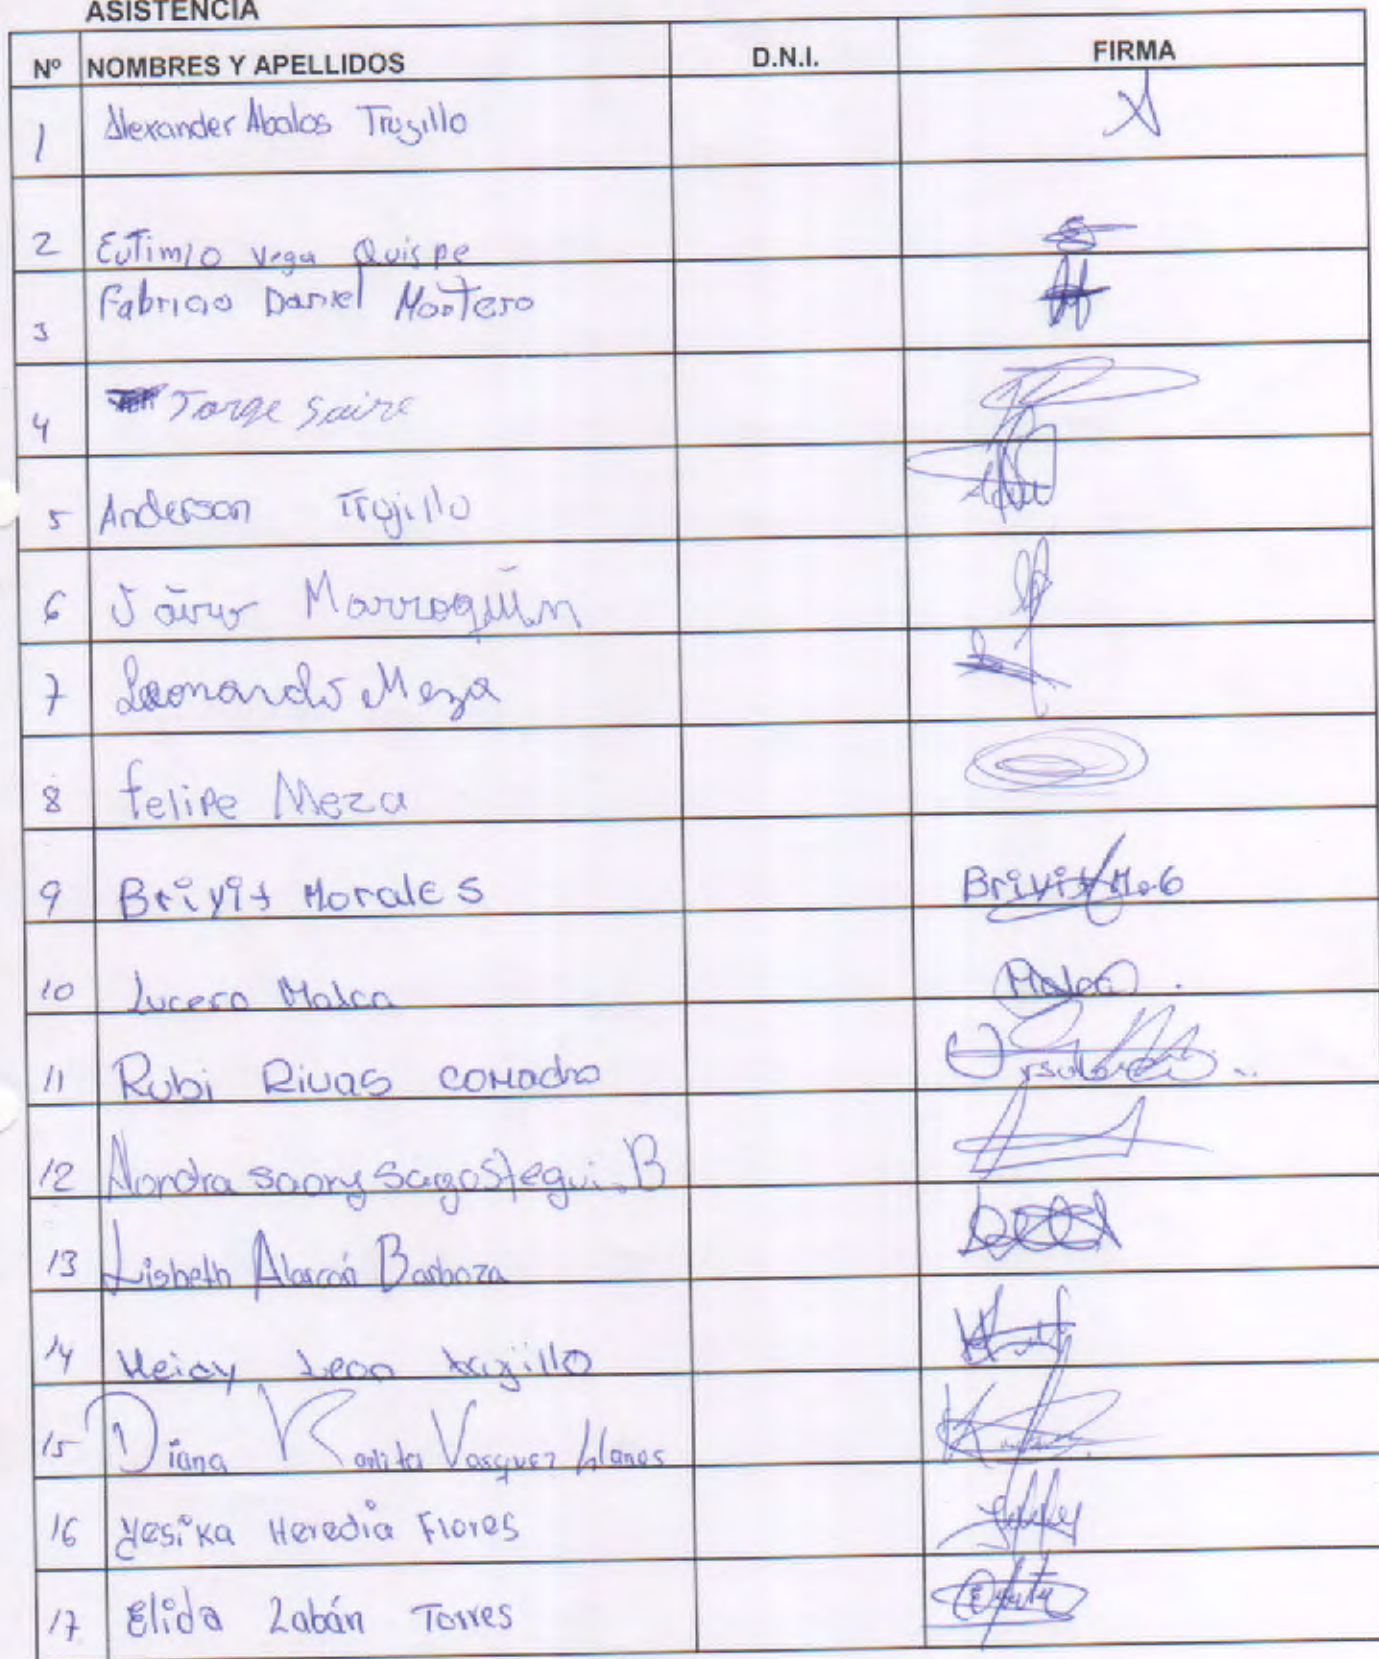 ASISTENCIA
Nº NOMBRES Y APELLIDOS D.N.I. FIRMA
1 Alexander Abalos Trujillo
2 Eutimio Vega Quispe
3 Fabricio Daniel Montero
4 Jorge Saire
5 Anderson Trujillo
6 Jairo Marroquin
7 Leonardo Meza
8 Felipe Meza
9 Brivit Morales Brivit
10 Lucero Malca Malca
11 Rubi Rivas
12 Alondra saory Sagastegui. B
13 Lisbeth Alarcón Barboza
14 Heidy Leon trujillo
15 Diana Karlita Vasquez Llanos
16 Yesika Heredia Flores
17 Elida Zabán Torres